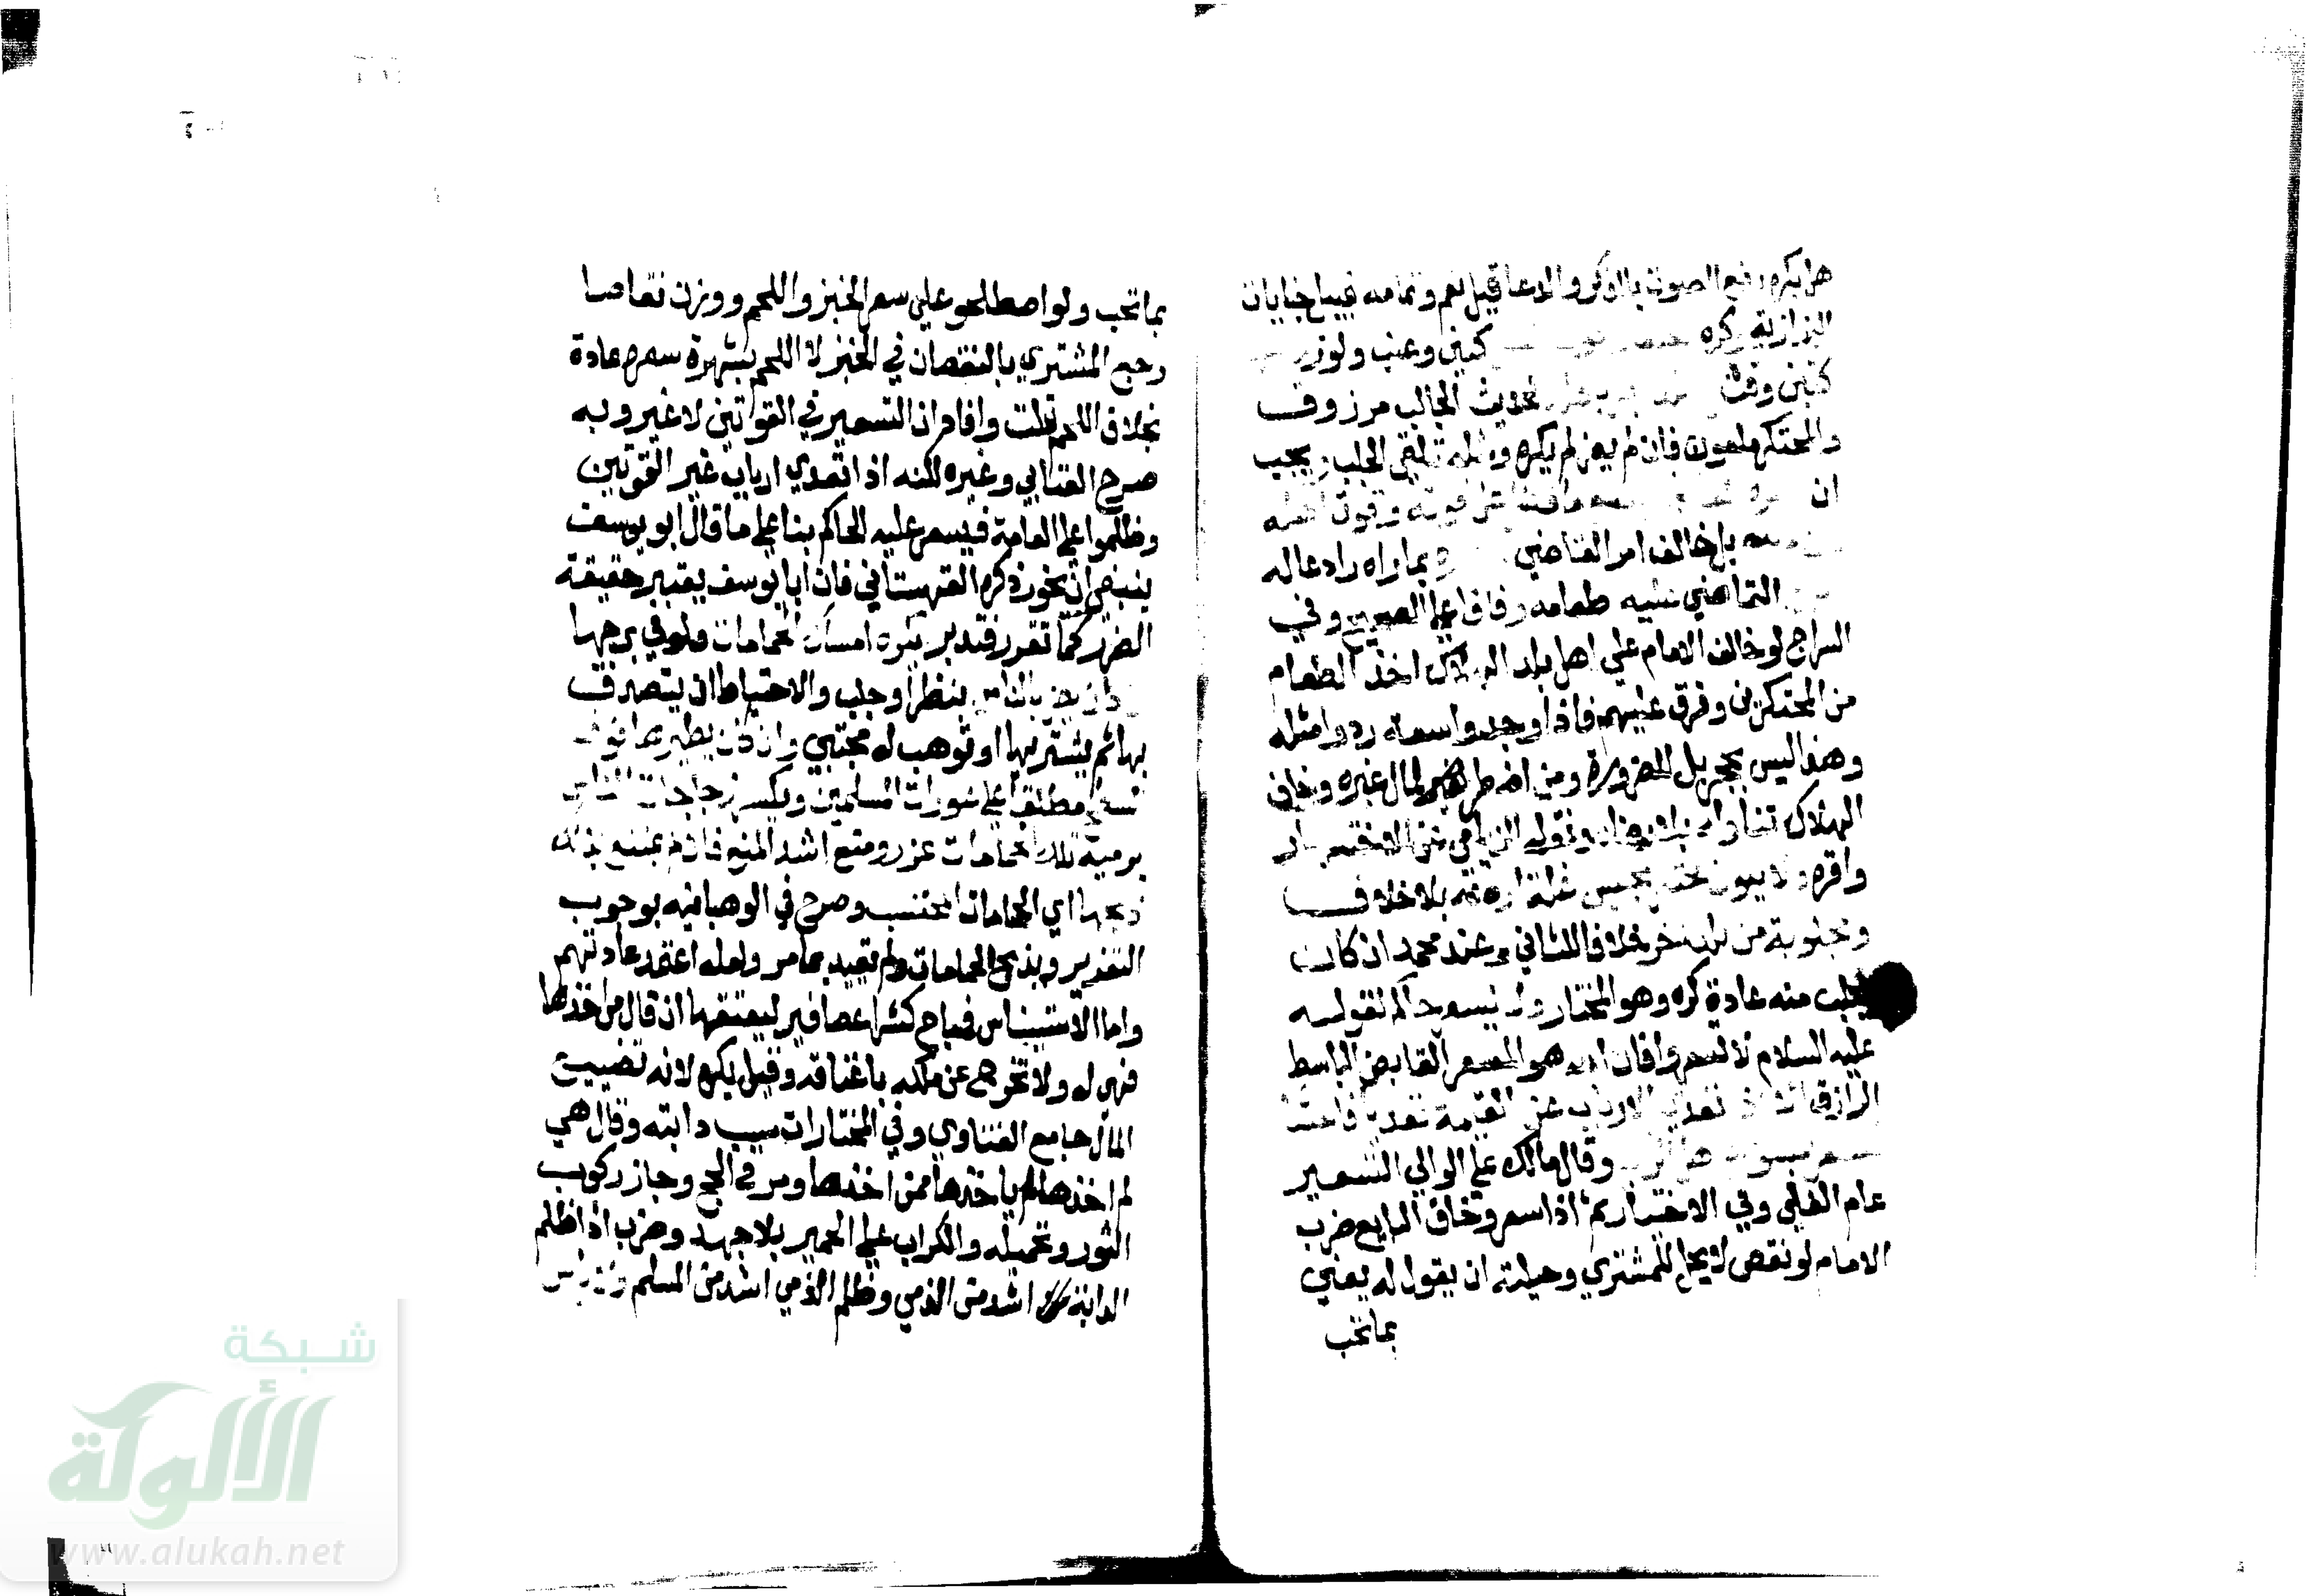 هل يكره رفع الصوت بالذكر والدعا قيل نعم وتمامه قبيل جنايات
البزازية وكره كتين وعنب ولوز
كتبن وقت لحديث الجالب مرزوق
والمحتكر ملعون فان لم يضر لم يكره ومثله تلقي الجلب ويجب
ان قوته وقوت اهله
بل خالف امر القاضي بما راه رادعا له
القاضي عليه طعامه وفاقا على الصحيح وفي
السراج لو خاف الامام على اهل بلد الهلاك اخذ الطعام
من المحتكرين وفرق عليهم فاذا وجدوا سعة ردوا مثله
وهذا ليس بحجر بل للضرورة ومن اضطر لمال غيره وخاف
الهلاك تناوله بلا رضاه ونقله الزيلعي عن الاختيار
واقره ولا يكون محتكرا بحبس غلة ارضه بلا خلاف
ومجلوبة من بلد اخر خلافا للثاني وعند محمد ان كان
يجلب منه عادة كره وهو المختار ولا يسعر حاكم لقوله
عليه السلام لا تسعروا فان الله هو المسعر القابض الباسط
الرازق الا اذا تعدى الارباب عن القيمة تعديا فاحشا
وقال مالك على الوالي التسعير
عام الغلا وفي الاختيار ثم اذا سعر وخاف البايع ضرب
الامام لو نقص لا يحل للمشتري وحيلته ان يقول له بعني
بما تحب
بما تحب ولو اصطلحو على سعر الخبز واللحم ووزن نقاصا
رجع المشتري بالنقصان في الخبز لا اللحم بشهرة سعره عادة
بخلاف اللحم قلت وافاد ان التسعير في القوتين لا غير وبه
صرح العتابي وغيره لكنه اذا تعدي ارباب غير القوتين
وظلموا على العامة فيسعر عليه الحاكم بنا على ما قال ابو يوسف
ينبغي ان يجوز ذكره القهستاني فان ابا يوسف يعتبر حقيقة
الضرر كما تقرر فتدبر يكره امساك الحمامات ولو في برجها
ان يضر بالناس بنظر او جلب والاحتياط ان يتصدق
بها ثم يشتريها او توهب له مجتبي وان كان يطيرها فوق
السطح مطلعا على عورات المسلمين ويكسر زجاجات الناس
برميه تلك الحمامات عزر ومنع اشد المنع فان لم يمتنع بذلك
ذبحها اي الحمامات المحتسب وصرح في الوهبانيه بوجوب
التعزير وبذبح الحمامات ولم تقيد بما مر ولعله اعتمد عادتهم
واما الاستيناس فمباح كشرا عصافير ليعتقها ان قال من اخذها
فهي له ولا تخرج عن ملكه باعتاقه وقيل يكره لانه تضييع
المال جامع الفتاوي وفي المختارات سيب دابته وقال هي
لم اخذها لم ياخذها ممن اخذها ومر في الحج وجاز ركوب
الثور وتحميله والكراب على الحمير بلا جهد وضرب اذ اظلم
الدابة اشد من الذمي وظلم الذمي اشد من المسلم
شبكة
الألوكة
www.alukah.net